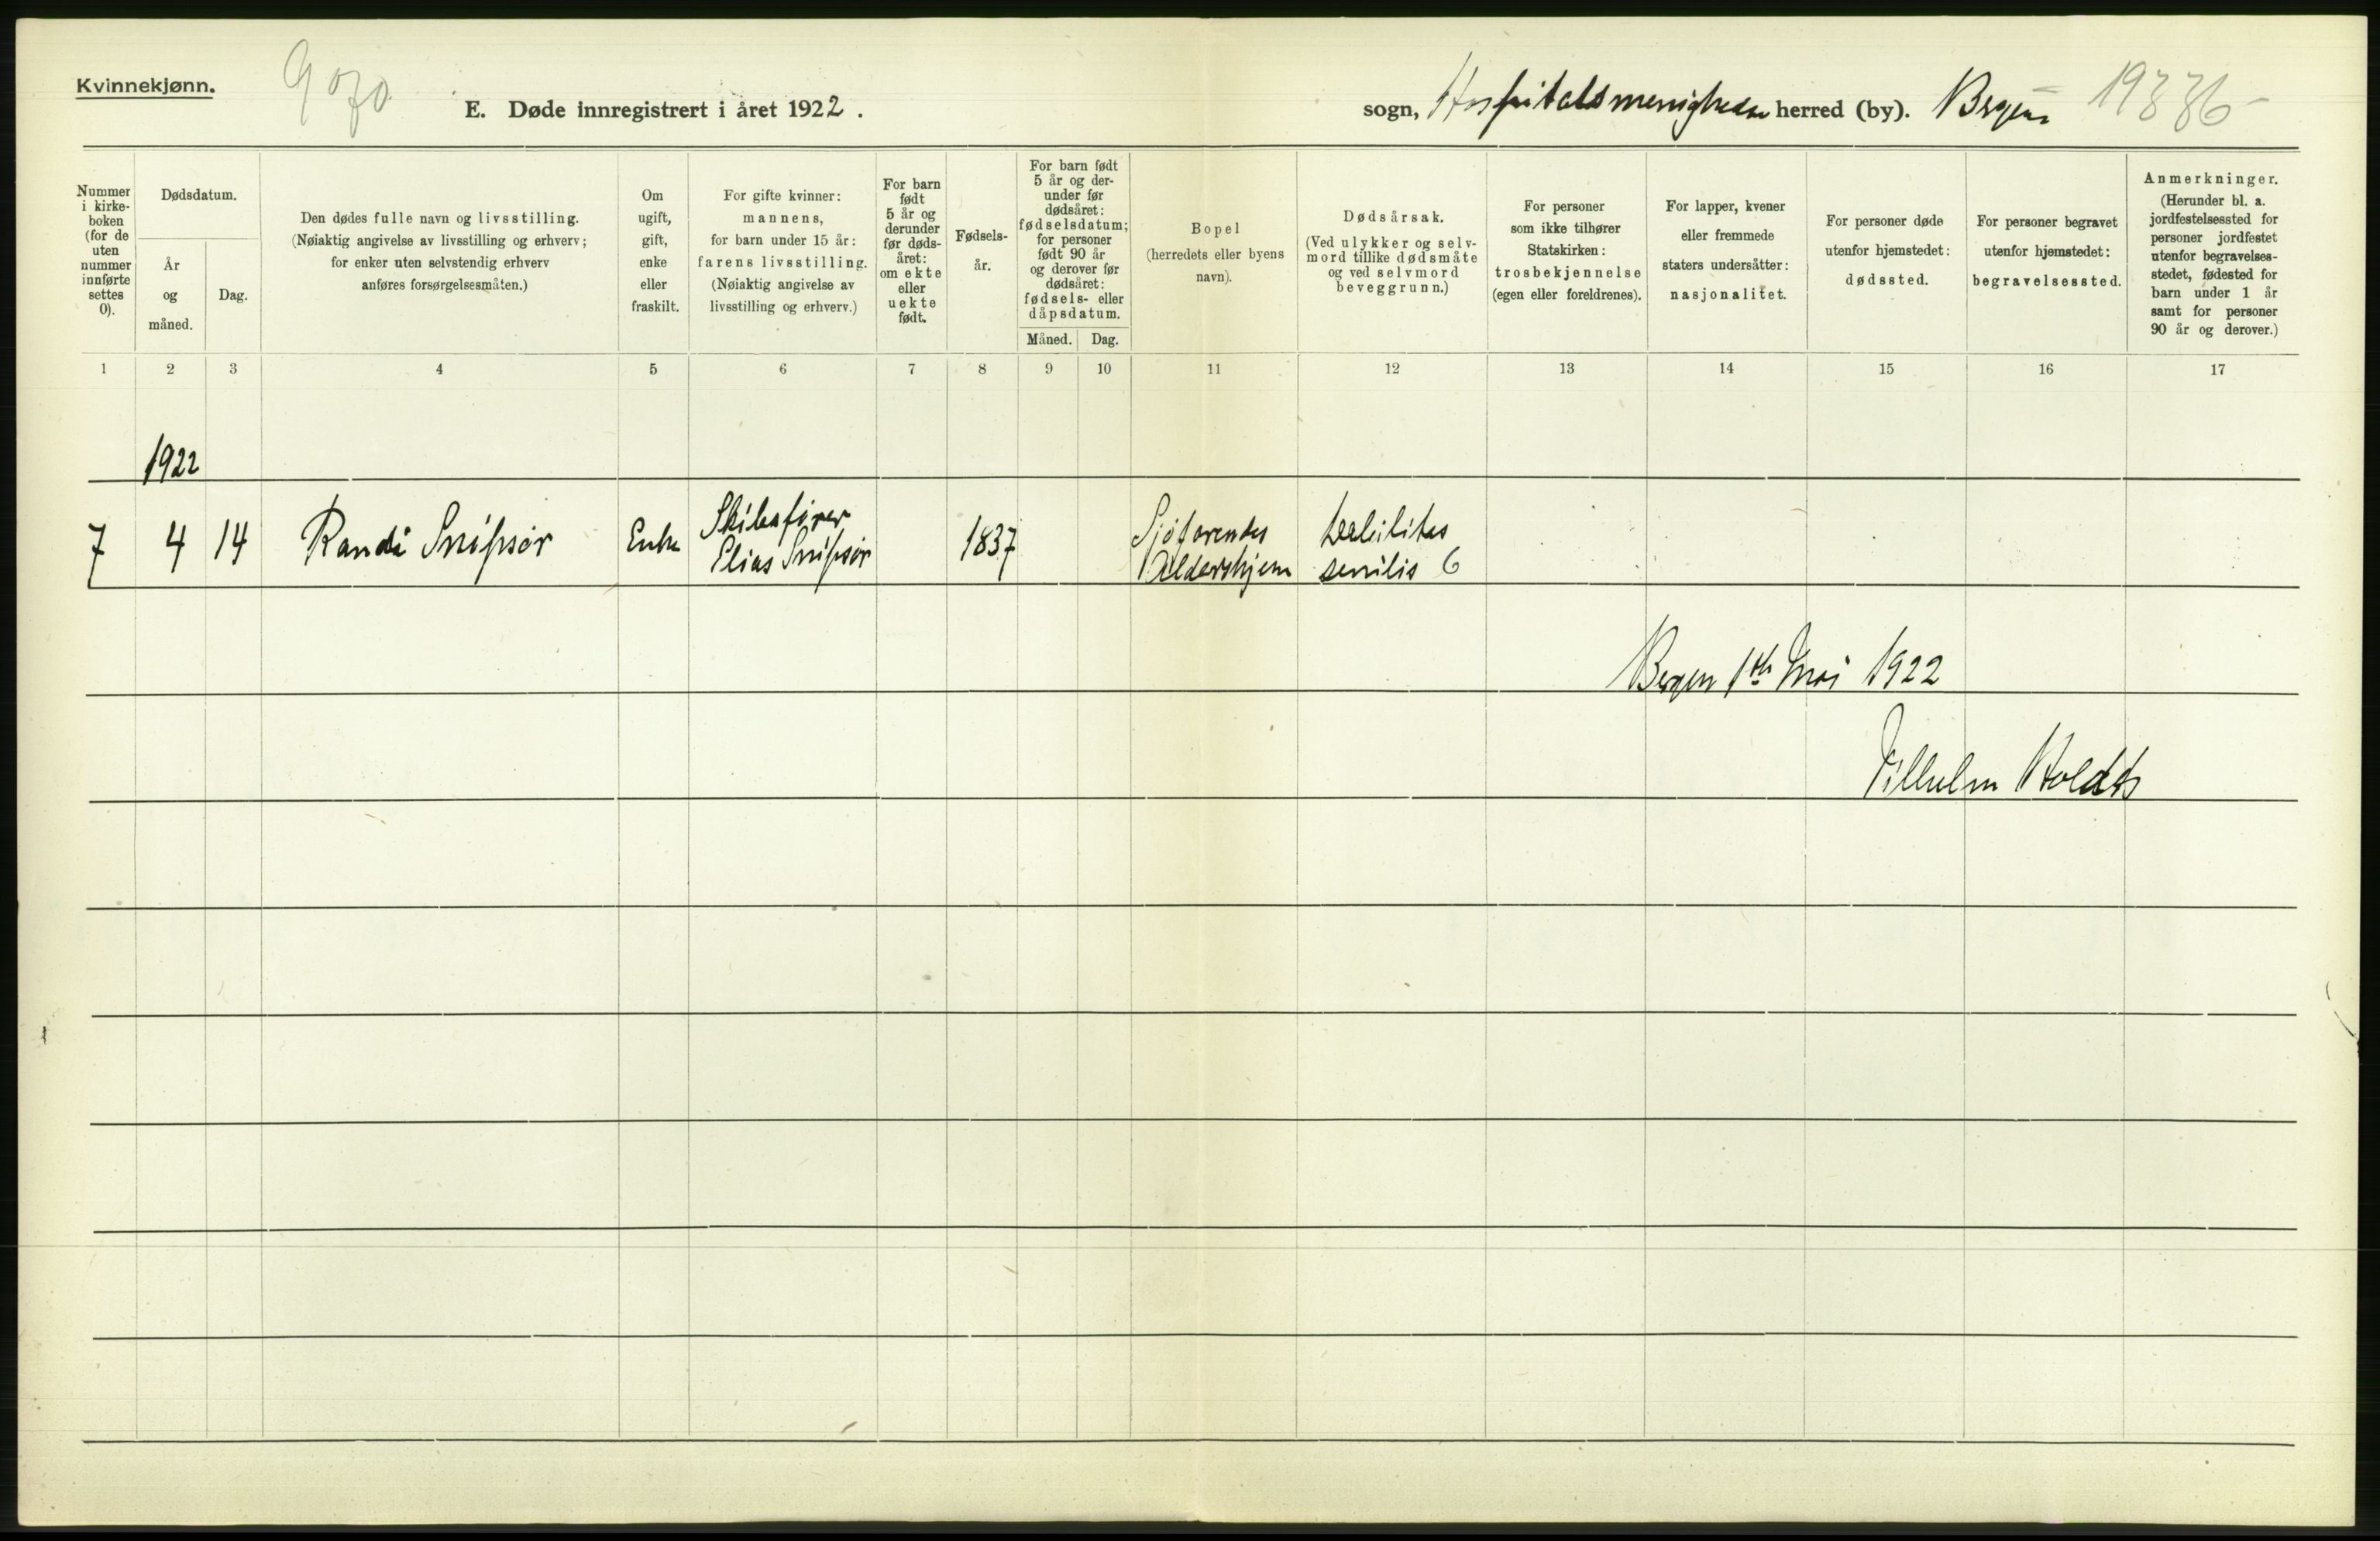 Kvinnekjønn.
9070
E. Døde innregistrert i året 1922.
sogn, Hospitalsmenigheden herred (by). Bergen
Nummer i kirke- boken (for de uten nummer innførte settes 0).
Dødsdatum.
År og måned.
Dag.
Den dødes fulle navn og livsstilling.
(Nøiaktig angivelse av livsstilling og erhverv;
for enker uten selvstendig erhverv
anføres forsørgelsesmåten.)
Om ugift, gift, enke eller fraskilt.
For gifte kvinner:
mannens,
for barn under 15 år:
farens livsstilling.
(Nøiaktig angivelse av
livsstilling og erhverv.)
For barn født 5 år og derunder før døds- året: om ekte eller uekte født.
Fødsels- år.
For barn født 5 år og der- under før dødsåret: fødselsdatum; for personer født 90 år og derover før dødsåret: fødsels- eller dåpsdatum.
Måned.
Dag.
Bopel
(herredets eller byens
navn).
Dødsårsak.
(Ved ulykker og selv-
mord tillike dødsmåte
og ved selvmord
beveggrunn.)
For personer
som ikke tilhører
Statskirken:
trosbekjennelse
(egen eller foreldrenes).
For lapper, kvener
eller fremmede
staters undersåtter:
nasjonalitet.
For personer døde
utenfor hjemstedet:
dødssted.
For personer begravet
utenfor hjemstedet:
begravelsessted.
Anmerkninger.
(Herunder bl. a.
jordfestelsessted for
personer jordfestet
utenfor begravelses-
stedet, fødested for
barn under 1 år
samt for personer
90 år og derover.)
1 2 3 4 5 6 7 8 9 10 11 12 13 14 15 16 17
1922
7 4 14 Randi Snipsør Enke Skibsfører Elias Snipsør 1837 Sjøfarendes Aldershjem Debilitas senilis 6
Bergen 1ste Mai 1922
Vilhelm Holdt